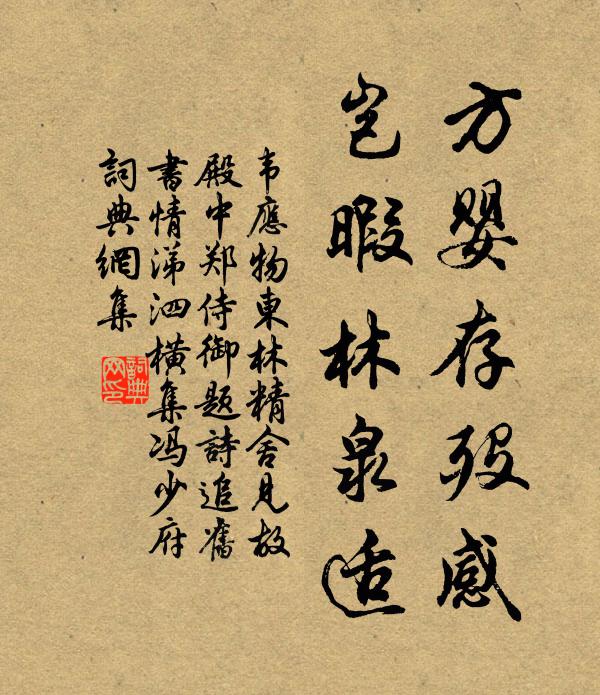 方婴存殁感
岂暇林泉适
韦應物東林精舍見故
殿中郑侍御題詩追舊
書情涕泗横集冯少府
詞典網集
詞典网印